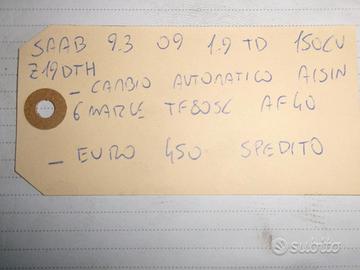 SAAB 9.3 09 1.9 TD 150CV
Z19DTH
- CAMBIO AUTOMATICO AISIN
6 MARCE TF80SC AF40
- EURO 450 SPEDITO
subito